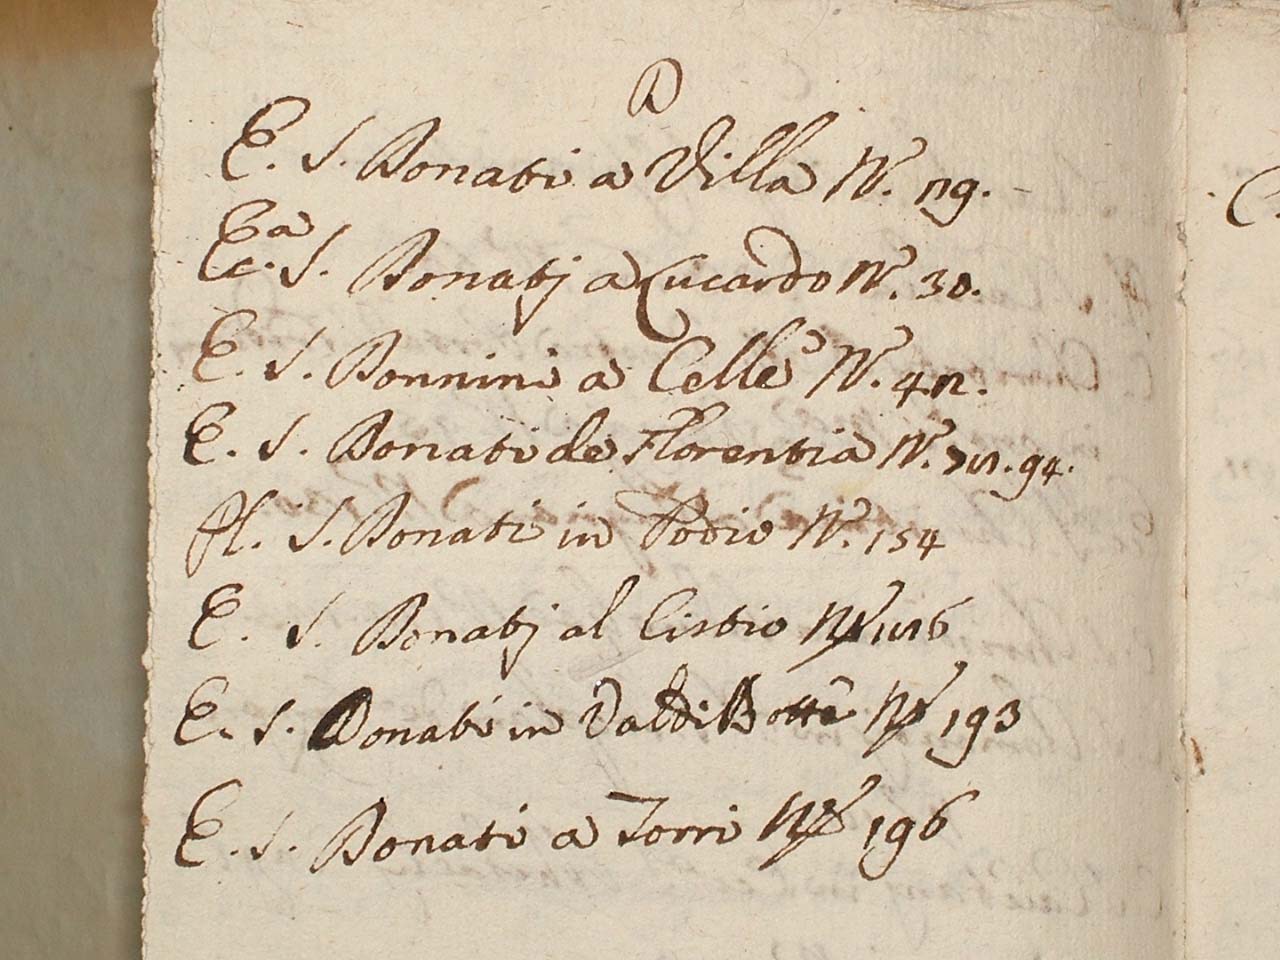 D
E. S. Donati a Villa N. 29.
Ecª. S. Donatj a Lucardo N. 30.
E. S. Donnini a Celle N. 42.
E. S. Donati de Florentia N. 94.
Pl. S. Donati in Podio N. 154
E. S. Donatj al Cistio N
E. S. Donati in Valdi Botte N 193
E. S. Donati a Torri N 196